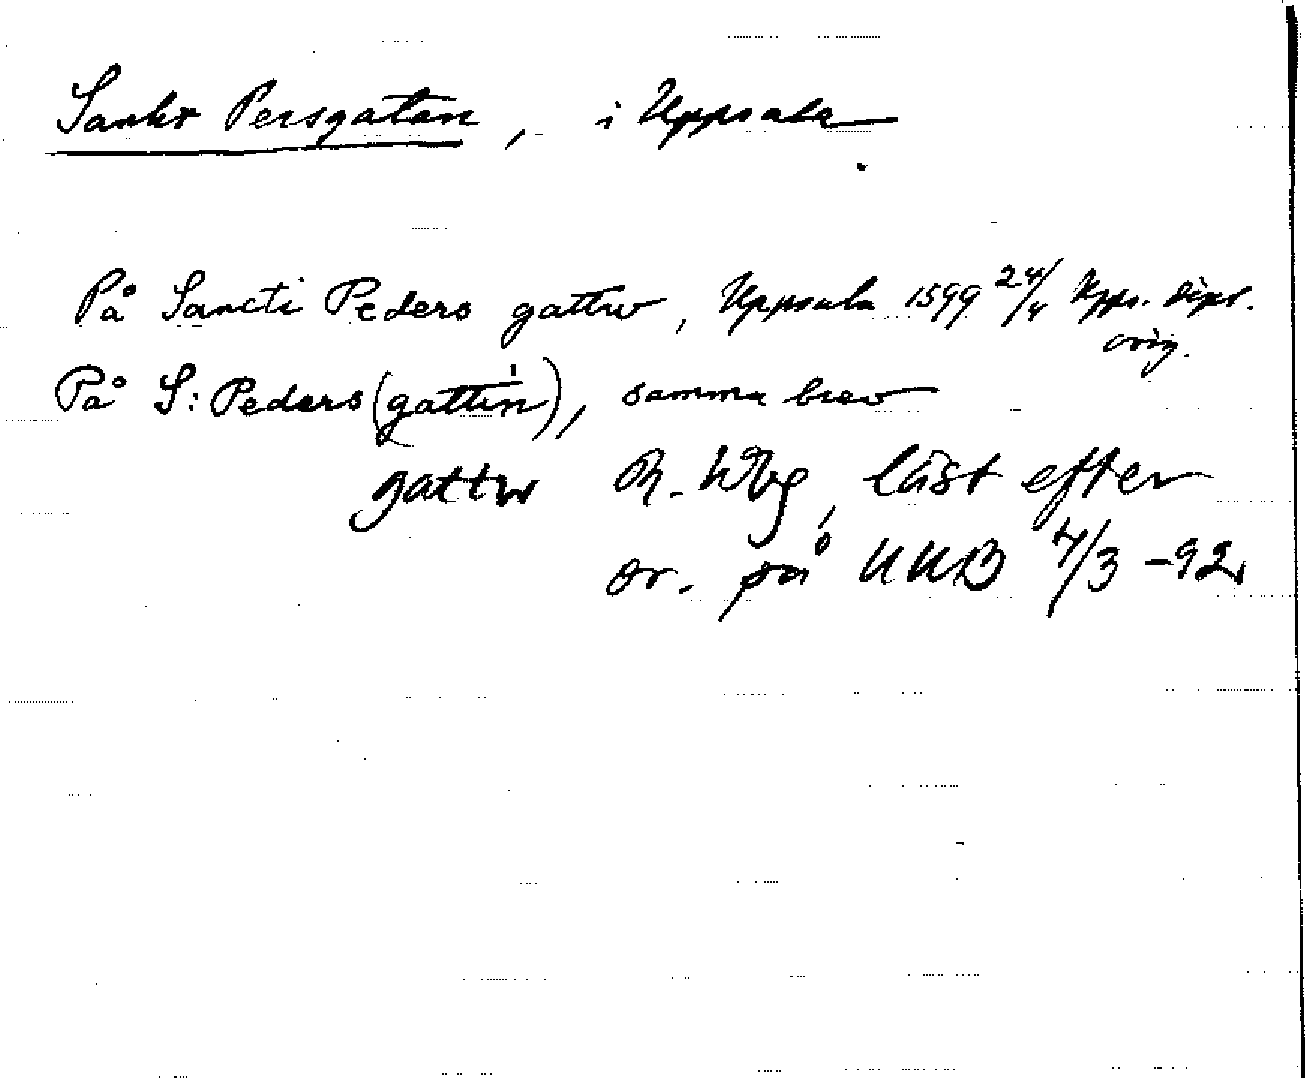 Sankt Persgatan, i Uppsala
På Sancti Peders gattw, Uppsala 1599 24/4 Upps. dipl.
orig.
På S: Peders (gattin), samma brev
gattw R. Wbg, läst efter
or. på UUB 4/3 -92